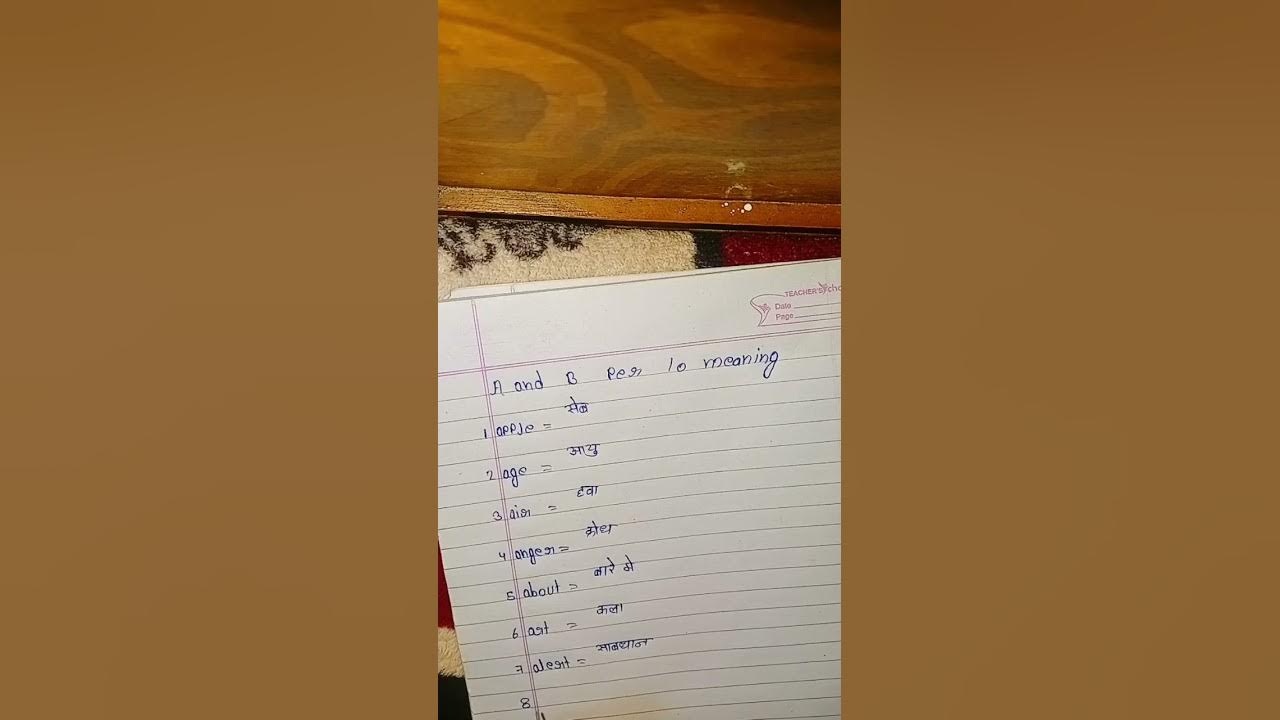 TEACHER'S
Date
Page
A and B Per 10 meaning
1 apple = सेब
2 age = आयु
3 air = हवा
4 anger = क्रोध
5 about = बारे मे
6 art = कला
7 alert = सावधान
8